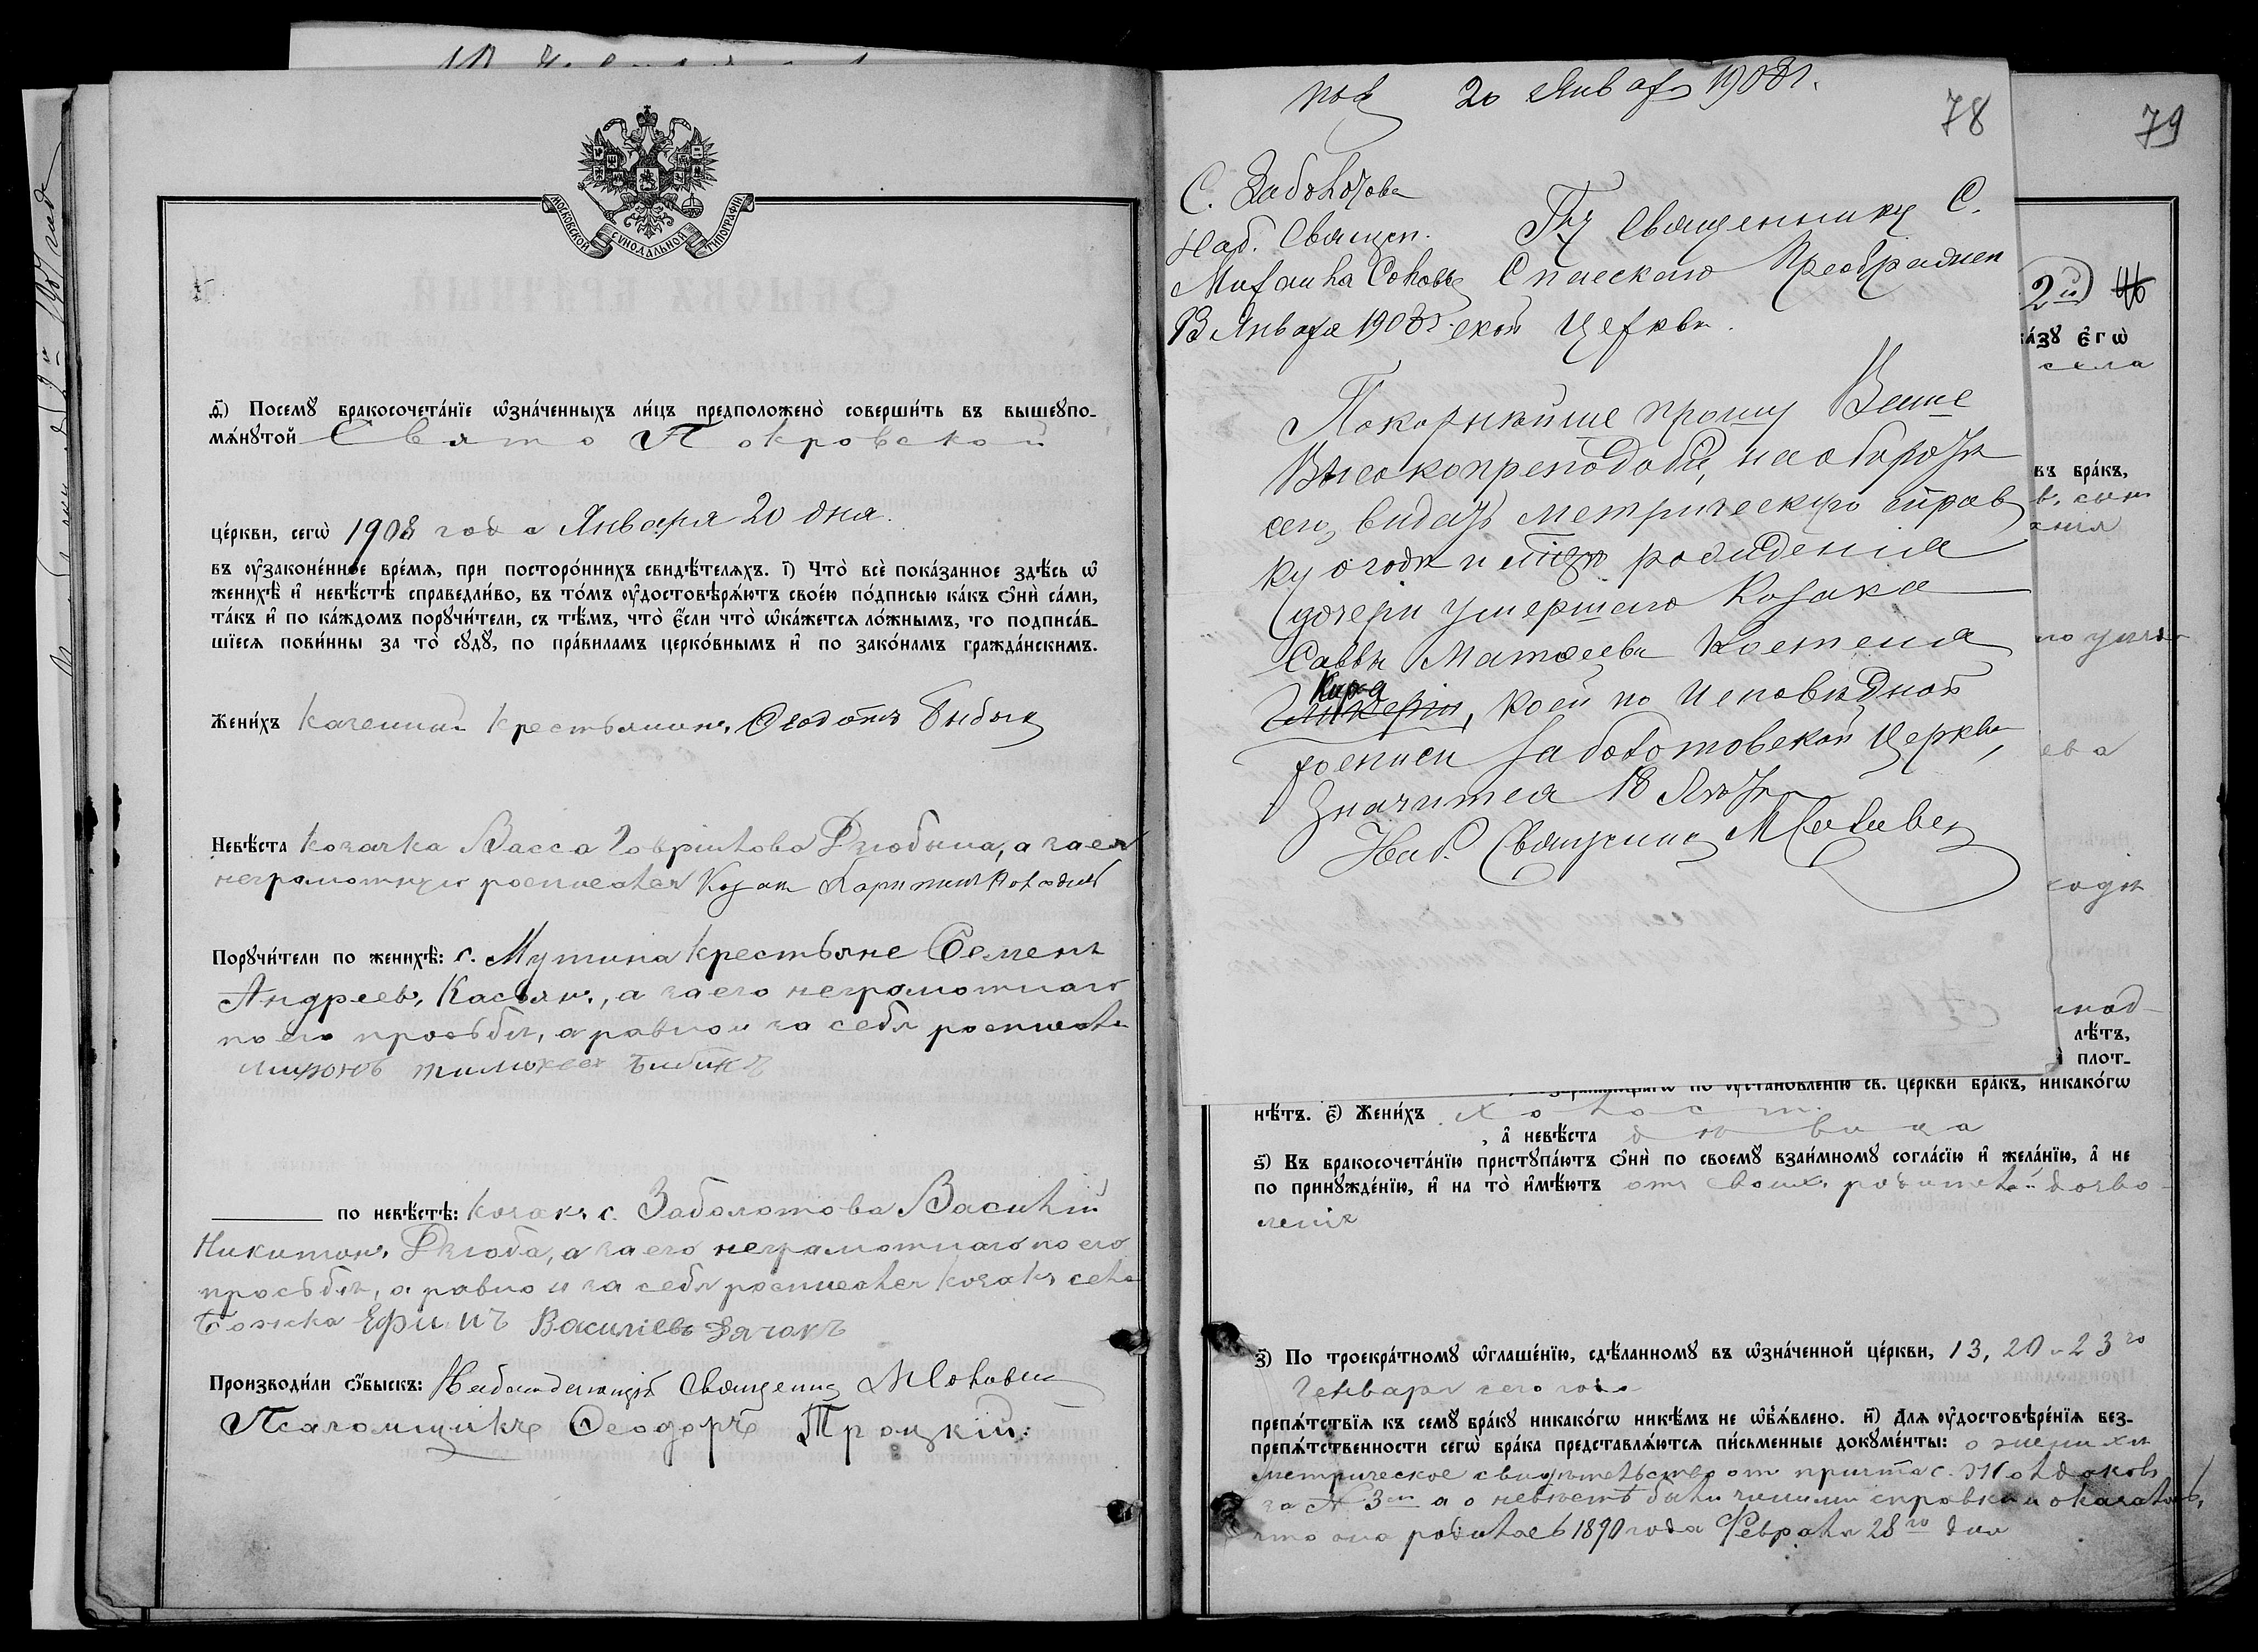 МОСКОВСКОЙ СѴНОДАЛЬНОЙ ТИПОГРАФІИ
д҃і) Посемꙋ̀ бракосочета́нїе ѡ҆зна́ченныхъ ли́цъ предположено̀ соверши́ть въ вышеꙋпо-
мѧ́нꙋтой Свято Покровской
це́ркви, сегѡ̀ 1908 года Января 20 дня.
въ ᲂу҆законе́нное вре́мѧ, при посторо́ннихъ свидѣ́телѧхъ. і҃) Что̀ всѐ пока́занное здѣ́сь ѡ҆
женихѣ̀ и҆ невѣ́стѣ справедли́во, въ то́мъ ᲂу҆достовѣрѧ́ютъ свое́ю по́дписью ка́къ ѻ҆нѝ са́ми,
та́къ и҆ по ка́ждомъ порꙋчи́тели, съ тѣ́мъ, что̀ є҆́сли что̀ ѡ҆ка́жется ло́жнымъ, то подписа́в-
шїесѧ пови́нны за то̀ сꙋдꙋ̀, по пра́виламъ церко́внымъ и҆ по зако́намъ гражда́нскимъ.
Жени́хъ крестьянинъ Ѳеодотъ Бибик
Невѣ́ста козачка Васса Гаврилова Дзюбина, а за ея
неграмотную росписался Козак
Порꙋчи́тели по женихѣ̀: с. Мутина крестьяне Семенъ
Андреевъ Касьянъ, а за его неграмотнаго
по его просьбѣ, а равно и за себя росписался
Бибикъ
по невѣ́стѣ: козакъ с. Заболотова Василій
Никитинъ Дзюба, а за его неграмотнаго по его
просьбѣ, а равно и за себя росписался козакъ села
Ефимъ Василіевъ Дячокъ
Производи́ли ѻ҆́быскъ: Наблюдающій Священник М Соловьев
Псаломщикъ Ѳеодоръ Троцкій.
20 Января 1908 г.
78
С. Заболотова
Наб. Священ.
Михаила Соловьева
13 Января 1908 г.
Г-ну Священнику С.
Спасской Преображен
ской Церкви.
Покорнѣйше прошу Ваше
Высокопреподобіе, на оборотѣ
сего, видать метрическую справ
ку о годѣ и рождения
дочери умершаго Козака
Саввы Матѳеева Костеля
Кира
Гликеріи, коей по исповѣдной
росписи Заболотовской Церкви,
Значится 18 Лѣтъ
Наб. Священник М Соловьев
79
2й
ка́зꙋ є҆гѡ̀
села
въ бра́къ,
годъ
лѣ́тъ,
плот-
по ᲂу҆становле́нїю св. це́ркви бра́къ, никако́гѡ
нѣ́тъ. є҃) Жени́хъ холостъ
, а҆ невѣ́ста дѣвица
ѕ҃) Въ бракосочета́нїю пристꙋпа́ютъ ѻ҆нѝ по своемꙋ̀ взаи́мномꙋ согла́сїю и҆ жела́нїю, а҆ не
по принꙋжде́нїю, и҆ на то̀ и҆мѣ́ютъ от своих родителей дозво
ленія
з҃) По троекра́тномꙋ ѡ҆глаше́нїю, сдѣ́ланномꙋ въ ѡ҆зна́ченной це́ркви, 13, 20 и 23 го
Генваря сего года
препѧ́тствїѧ къ семꙋ̀ бра́кꙋ никако́гѡ никѣ́мъ не ѡ҆б̾ѧ́влено. и҃) Длѧ ᲂу҆достовѣре́нїѧ без-
препѧ́тственности сегѡ̀ бра́ка представлѧ́ютсѧ пи́сьменные докꙋме́нты: о женихѣ
метрическое свидѣтельство от причта с. Жолдаковъ
за № 3 м а о невѣстѣ справки оказалось,
что она родилась 1890 года Февраля 28 го дня